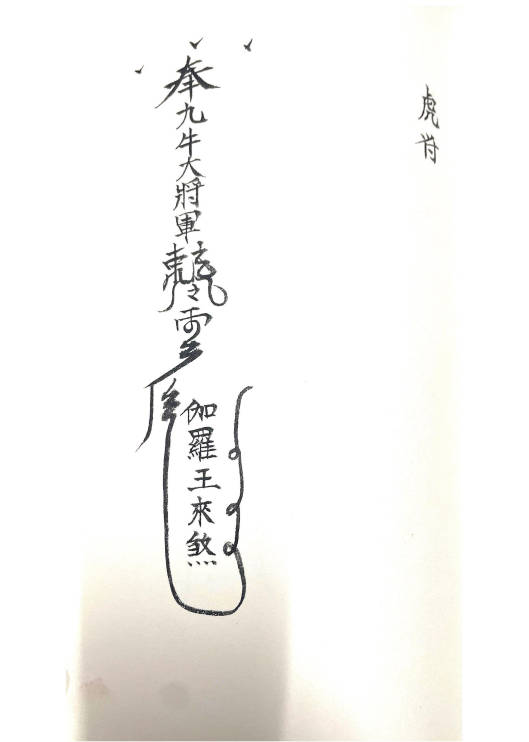 虎符
奉九牛大將軍
伽羅王來煞